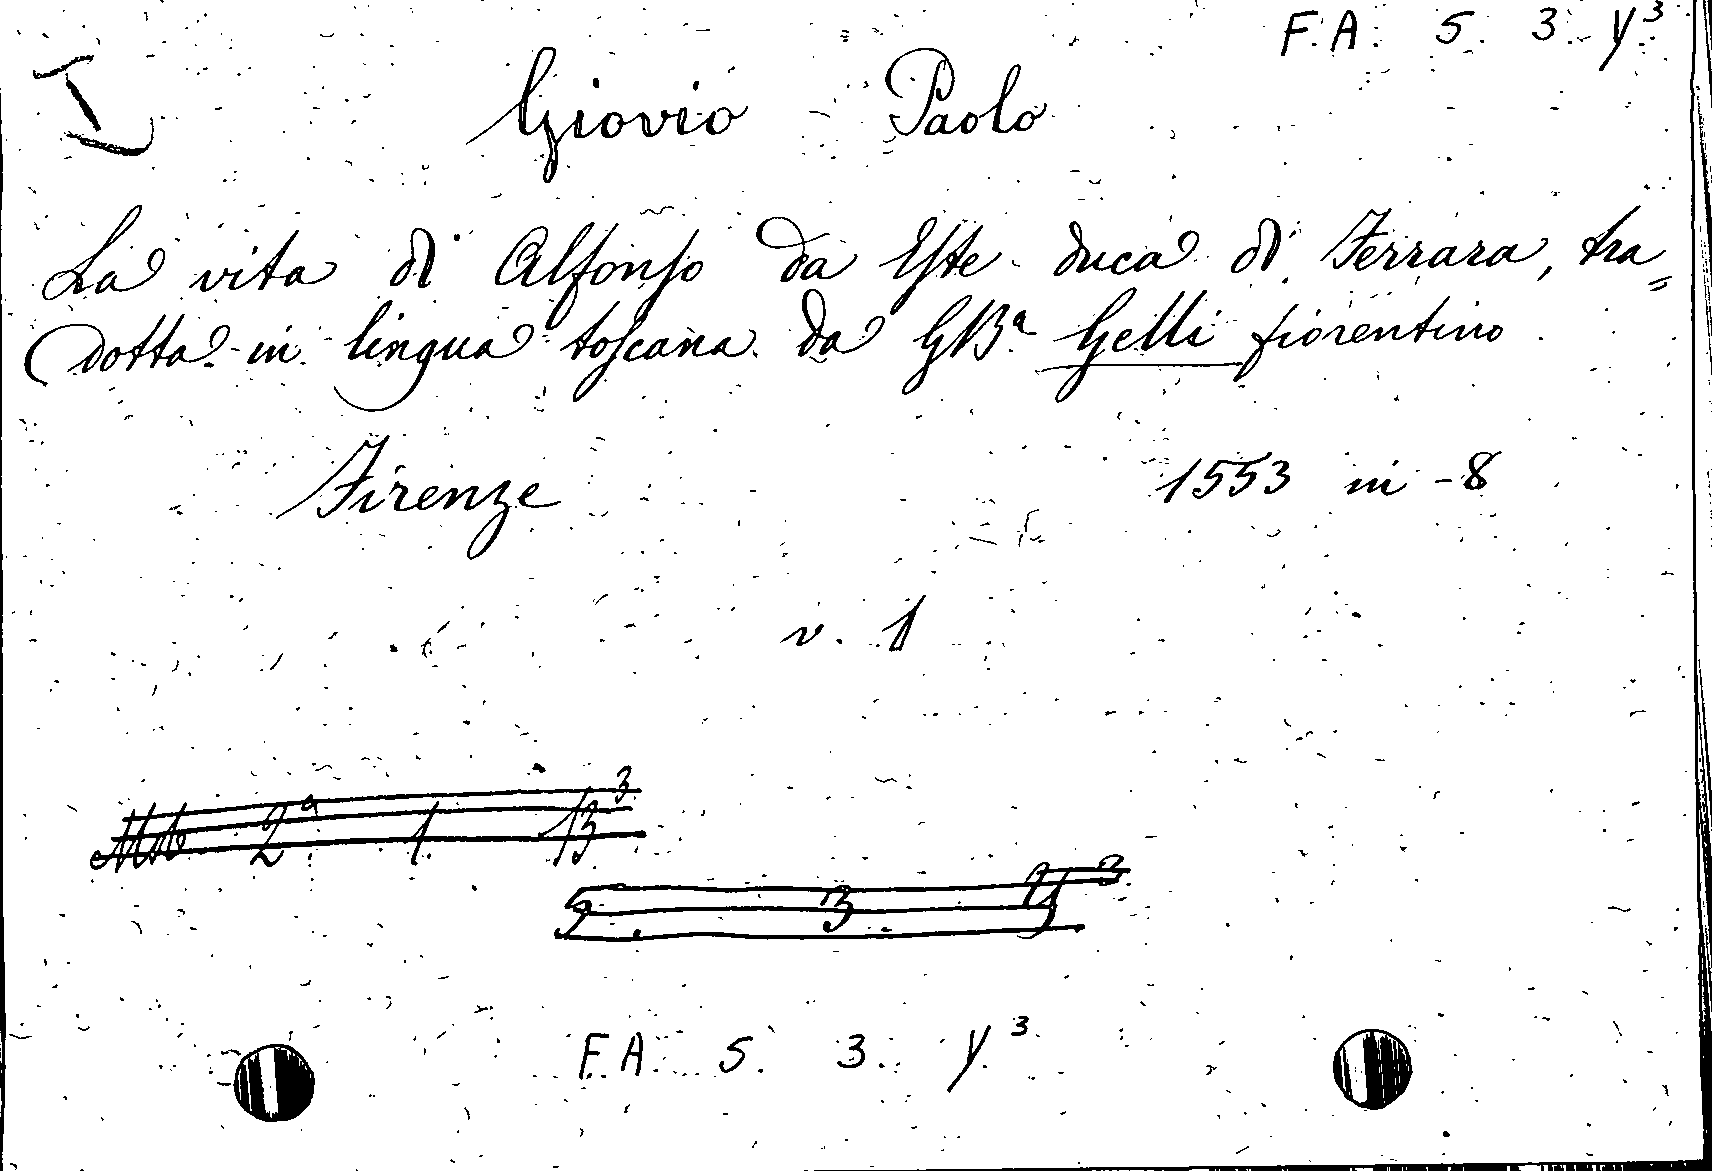 F. A. 5. 3. Y³
I
Giovio Paolo
La vita di Alfonso da Este duca di Ferrara, tra=
dotta in lingua toscana da GBª Gelli fiorentino
Firenze 1553 in-8
v. 1
2ª 1. 13³
5. 3. Y³
F. A. 5. 3. Y.³